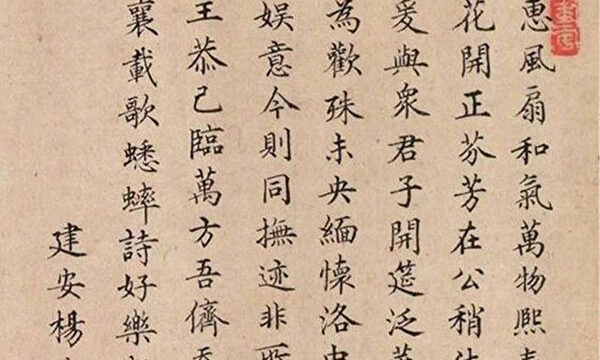 惠風扇和氣萬物熙
花開正芬芳在公稍
爰與衆君子開筵泛
為歡殊未央緬懷洛
娱意今則同撫迹非
王恭己臨萬方吾儕
襄載歌蟋蟀詩好樂
建安楊